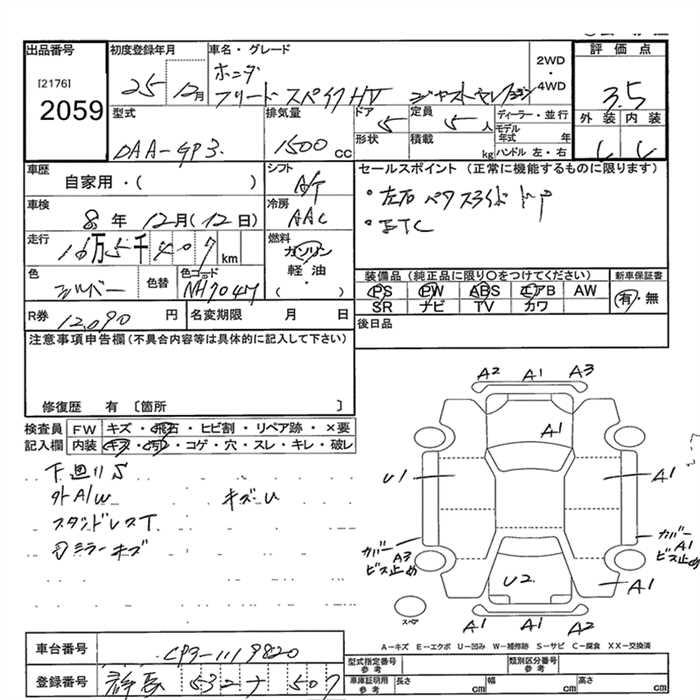 出品番号
[2176]
2059
初度登録年月
25 年 12月
車名・グレード
ホンダ
フリード スパイクHV ジャストセレクション
2WD
・
4WD
評価点
3.5
外装 内装
型式
DAA-GP3
排気量
1500 cc
ドア
5
定員
5 人
形状
積載
kg
ディーラー・並行
モデル年式 年
ハンドル 左・右
車歴
自家用・( )
シフト
A/T
セールスポイント (正常に機能するものに限ります)
・左右パワスライドドア
・ETC
車検
8年 12月(12日)
冷房
AAC
走行
万5千407km
燃料
ガソリン
軽油
( )
色
シルバー
色替
色コード
NH704M
装備品 (純正品に限り○をつけてください)
PS PW ABS エアB AW
SR ナビ TV カワ
新車保証書
有・無
R券 12,090 円
名変期限 月 日
後日品
注意事項申告欄(不具合内容等は具体的に記入して下さい)
修復歴 有 〔箇所 〕
検査員記入欄
FW キズ・飛石・ヒビ割・リペア跡・×要
内装 キズ・汚れ・コゲ・穴・スレ・キレ・破レ
下廻りS
外A/W キズU
スタッドレスT
ミラーキズ
A2 A1 A3
A1
U1
A1
カバー A3
ビス止め
カバー A1
ビス止め
U2
A1
A1 A1 A2
スペア
A-キズ E-エクボ U-凹み W-補修跡 S-サビ C-腐食 XX-交換済
車台番号
GP3-1119820
登録番号
群馬 532 す 507
型式指定番号
参考
類別区分番号
参考
車庫証明用
参考
長さ cm
幅 cm
高さ cm